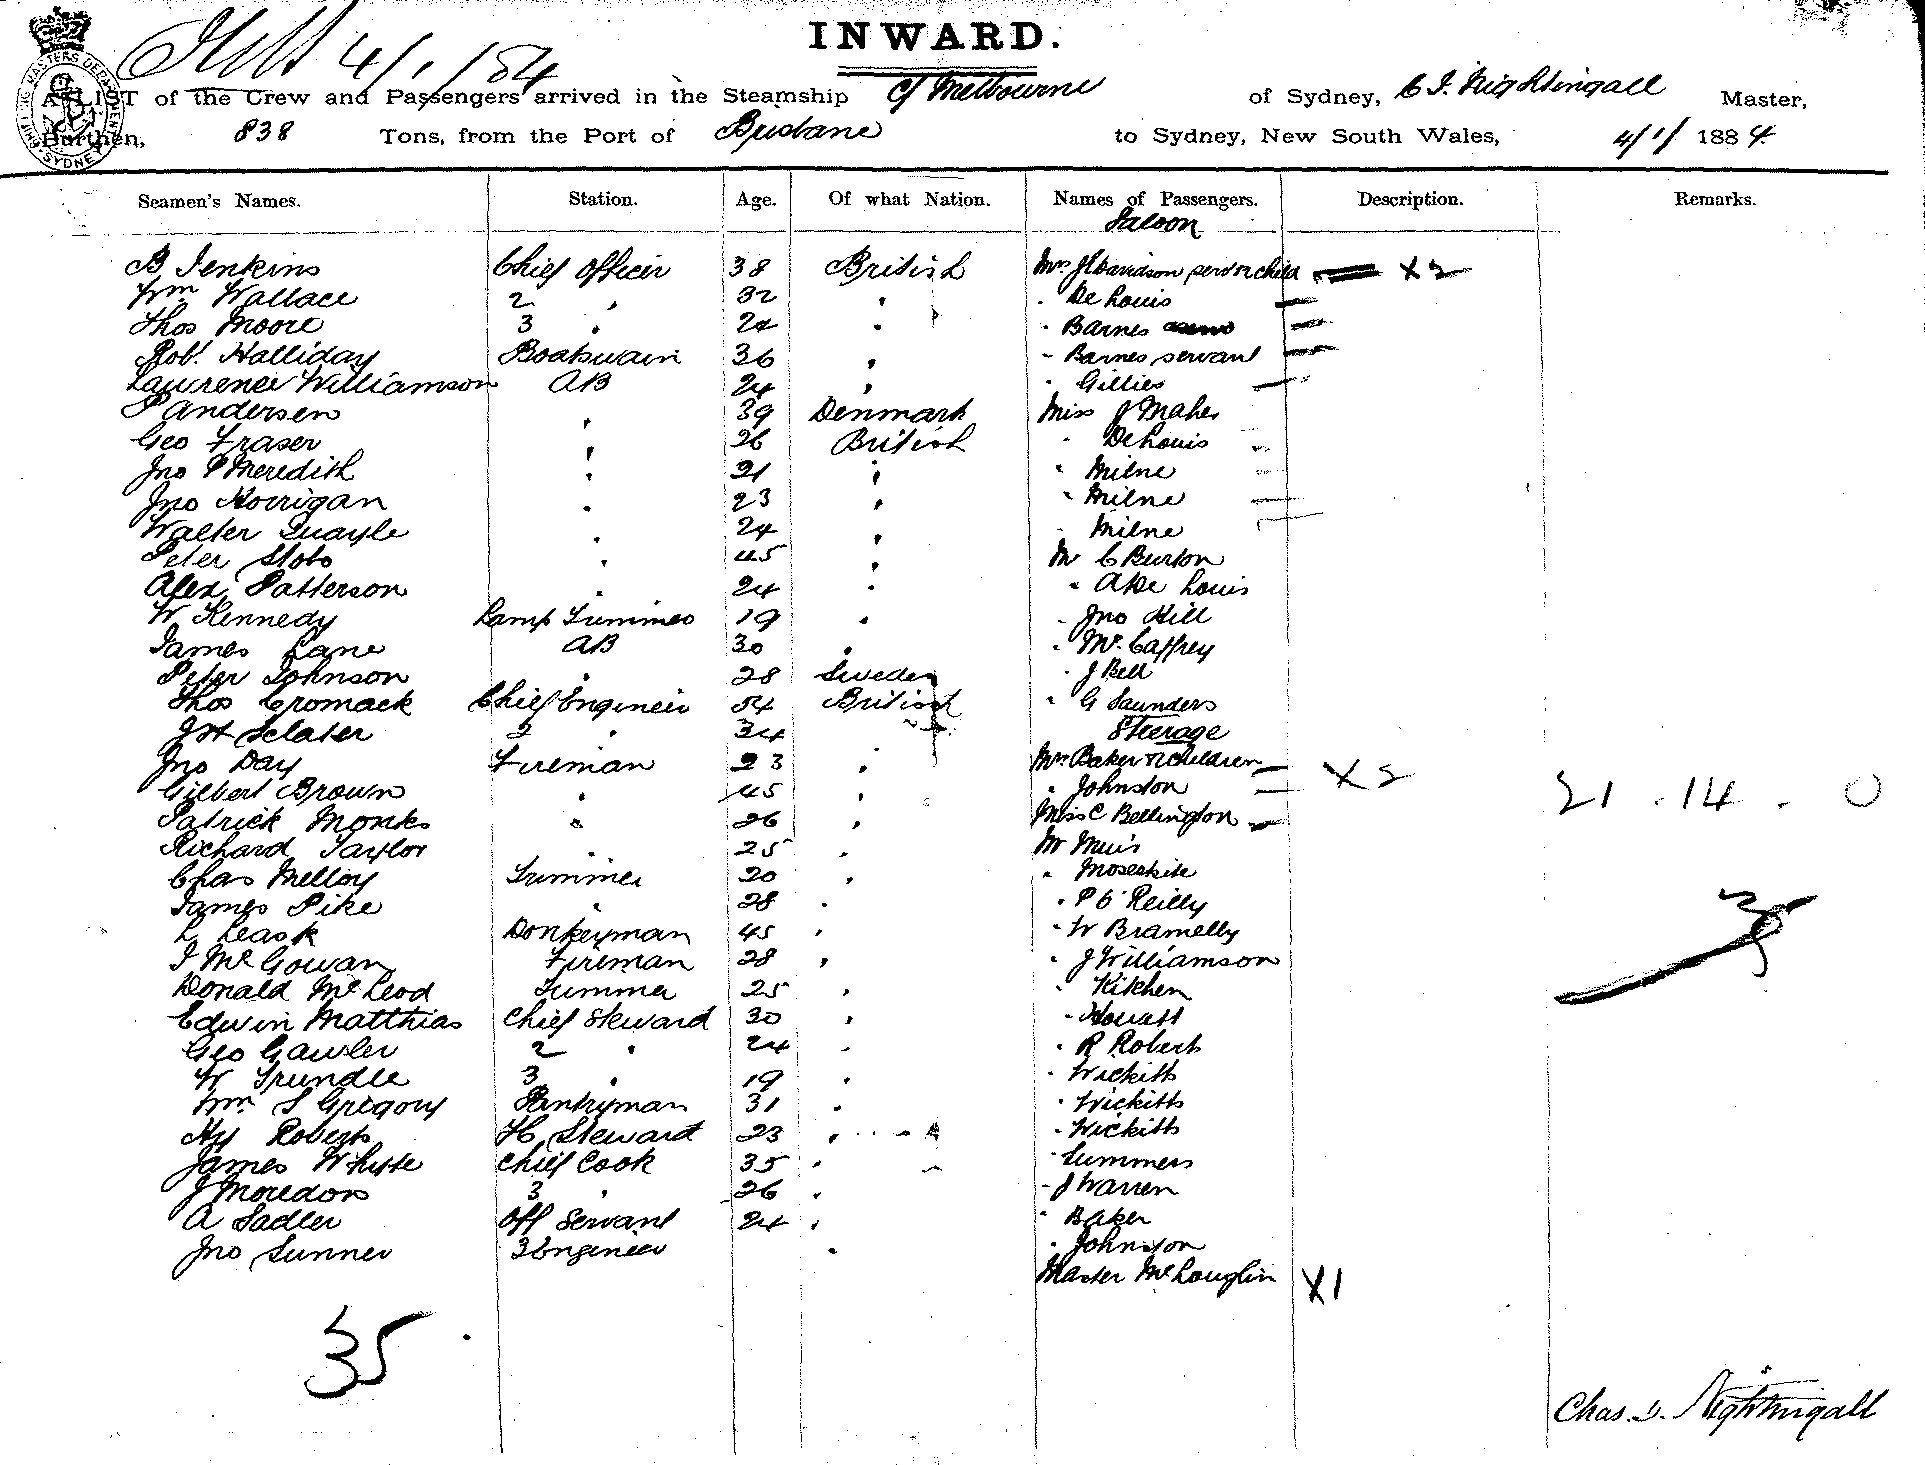 INWARD.
4/1/84
A LIST of the Crew and Passengers arrived in the Steamship C/ Melbourne of Sydney, C. I. Nightingall Master,
Burthen, 838 Tons, from the Port of Brisbane to Sydney, New South Wales, 4/1/ 1884.
Seamen's Names. Station. Age. Of what Nation. Names of Passengers. Description. Remarks.
Saloon
B Jenkins Chief Officer 38 British Mrs Davidson servt & child X2
Wm Wallace 2 " 32 " " De Louis
Thos Moore 3 " 24 " " Barnes
Robt Halliday Boatswain 36 " " Barnes servant
Lawrence Williamson AB 24 " " Gillies
P Andersen " 39 Denmark Miss J Maher
Geo Fraser " 26 British " De Louis
Jno P Meredith " 21 " " Milne
Jno Horrigan " 23 " " Milne
Walter Quayle " 24 " " Milne
Peter Stobo " 45 " Mr C Burton
Alex Patterson " 24 " " A De Louis
W Kennedy Lamp Trimmer 19 " " Jno Hill
James Lane AB 30 " " McCaffrey
Peter Johnson " 28 Sweden " J Bell
Thos Cromack Chief Engineer 54 British " G Saunders
J H Sclater 2 " 34 " Steerage
Jno Day Fireman 23 " Mrs Baker & 2 children X2 21 . 14 . 0
Gilbert Brown " 45 " " Johnston
Patrick Monks " 26 " Miss C Bellington
Richard Taylor " 25 " Mr Muir
Chas Melloy Trimmer 20 "
James Pike " 28 " " P O'Reilly
L Leask Donkeyman 45 " " W Bramelly
J McGowan Fireman 28 " " J Williamson
Donald McLeod Trimmer 25 " " Kitchen
Edwin Matthias Chief Steward 30 " " Howatt
Geo Gawler 2 " 24 " " R Robert
W Trundle 3 " 19 " " Wickitts
Wm S Gregory Pantryman 31 " " Wickitts
Hy Roberts FC Steward 23 " " Wickitts
James Whyte Chief Cook 35 " " Summers
J Moredon 3 " 26 " " J Warren
A Sadler Off Servant 24 " " Baker
Jno Sunner 3 Engineer " " Johnston
Master McLouglin X1
35
Chas. I. Nightingall